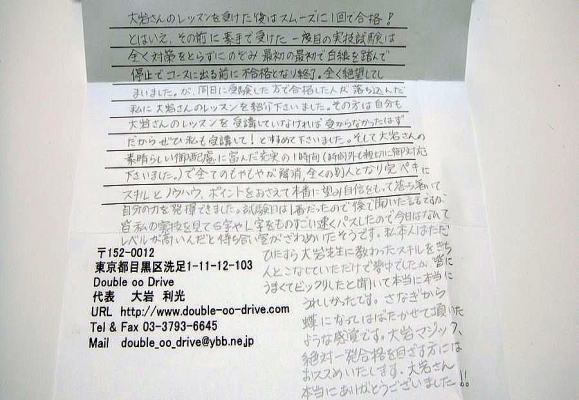 大岩さんのレッスンを受けた後はスムーズに1回で合格!
とはいえ、その前に素手で受けた一度目の実技試験は
全く対策をとらずにのぞみ最初の最初で白線を踏んで
停止でコースに出る前に不合格となり終了。全く絶望して
しまいました。が、同日に受験した方で合格した人が落ち込んだ
私に大岩さんのレッスンを紹介下さいました。その方は自分も
大岩さんのレッスンを受講していなければ受からなかったはず
だからぜひ私も受講して!とすすめて下さいました。そして大岩さんの
素晴らしい御配慮に富んだ充実の1時間(時間外も親切に御対応
下さいました。)で全てのもやもやが解消、全くの別人となり完ペキに
スキルとノウハウ、ポイントをおさえて本番に望み自信をもって落ち着いて
自分の力を発揮できました。試験日は1番だったので後で聞いたもですが
皆私の実技を見てS字やL字をものすごい速くパスしたので今日はなんて
レベルが高いんだと待ち合い室がざわめいたそうです。私本人はただ
ひたすら大岩先生に教わったスキルをきち
んとこなていただけで夢中でしたが、皆に
うまくてビックリしたと聞いて本当に本当に
うれしかったです。さなぎから
蝶になってはばたかせて頂いた
ような感覚です。大岩マジック、
絶対一発合格を目ざす方には
おススめいたします。大岩さん
本当にありがとうございました!!
〒152-0012
東京都目黒区洗足1-11-12-103
Double oo Drive
代表 大岩 利光
URL http://www.double-oo-drive.com
Tel & Fax 03-3793-6645
Mail double_oo_drive@ybb.ne.jp